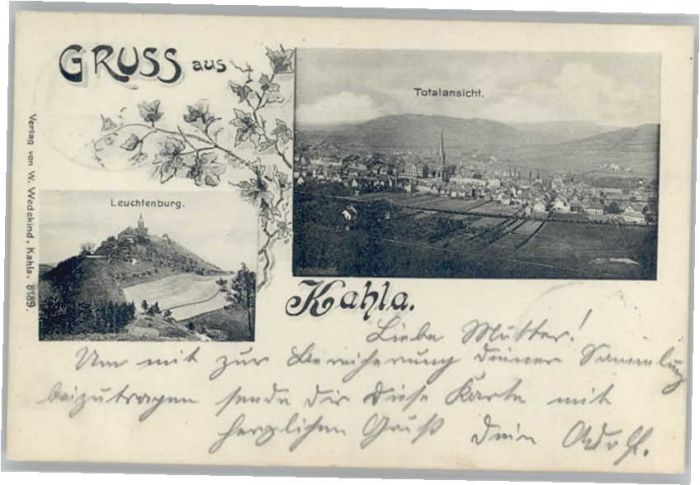 GRUSS aus
Totalansicht.
Leuchtenburg.
Verlag von W. Wedekind, Kahla. 8189.
Kahla.
Liebe Mutter!
Um mit zur Bereicherung deiner Sammlung
beizutragen sende dir diese Karte mit
herzlichen Gruß dein Adolf.